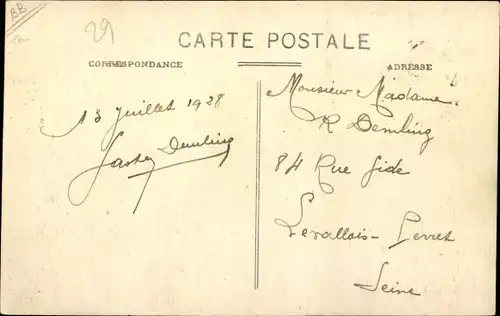 BB
29
CARTE POSTALE
CORRESPONDANCE
ADRESSE
13 Juillet 1928
Demling
Monsieur Madame
R Demling
84 Rue Gide
Levallois-Perret
Seine